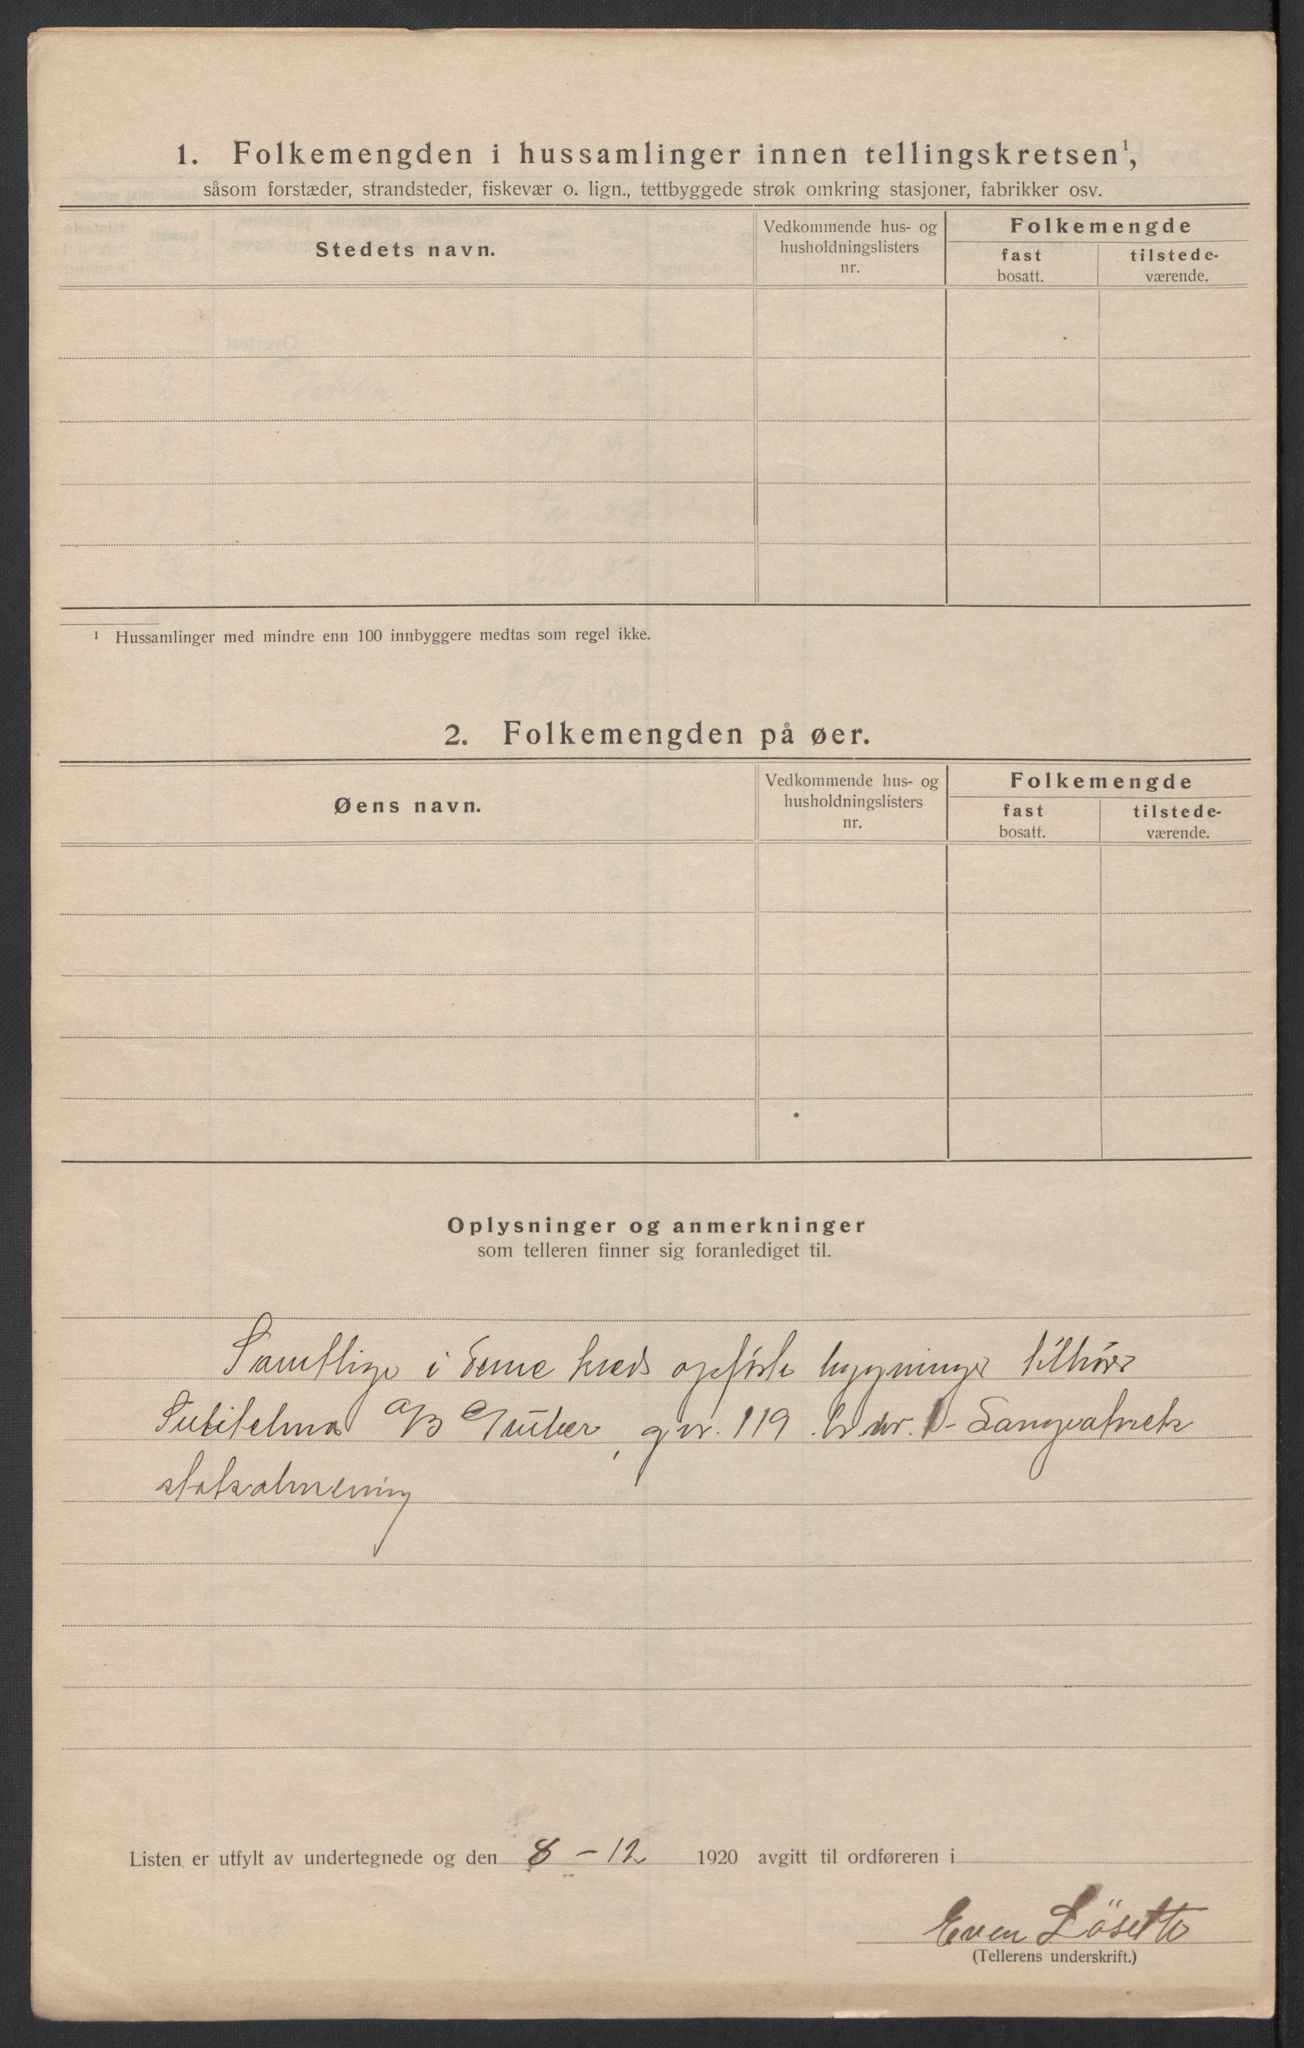 1. Folkemengden i hussamlinger innen tellingskretsen¹,
såsom forstæder, strandsteder, fiskevær o. lign., tettbyggede strøk omkring stasjoner, fabrikker osv.
Stedets navn.
Vedkommende hus- og husholdningslisters nr.
Folkemengde
fast bosatt.
tilstede-værende.
¹ Hussamlinger med mindre enn 100 innbyggere medtas som regel ikke.
2. Folkemengden på øer.
Øens navn.
Vedkommende hus- og husholdningslisters nr.
Folkemengde
fast bosatt.
tilstede-værende.
Oplysninger og anmerkninger
som telleren finner sig foranlediget til.
Samtlige i denne kreds opførte bygninger tilhører
Sulitelma A/B Gruber, gnr. 119 bnr. 1 - Langvatnets
statsalmening
Listen er utfylt av undertegnede og den 8 - 12 1920 avgitt til ordføreren i
Even Løsett
(Tellerens underskrift.)